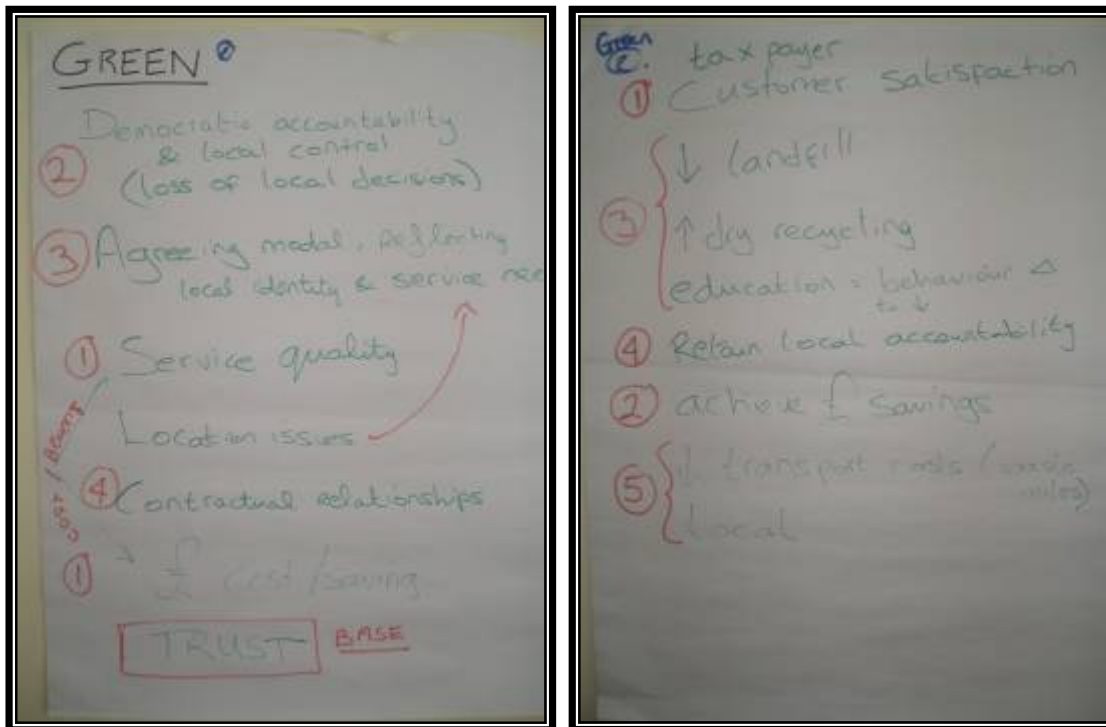 GREEN
Democratic accountability
& local control
② (loss of local decisions)
③ Agreeing model, reflecting
local identity & service nee
① Service quality
Location issues
COST / BENEFIT
④ Contractual relationships
① £ cost/saving
TRUST BASE
Green
②. tax payer
① Customer satisfaction
↓ landfill
③ ↑ dry recycling
education = behaviour Δ
to ↓
④ Retain local accountability
② achieve £ savings
⑤ ↓ transport costs (waste
miles)
Local